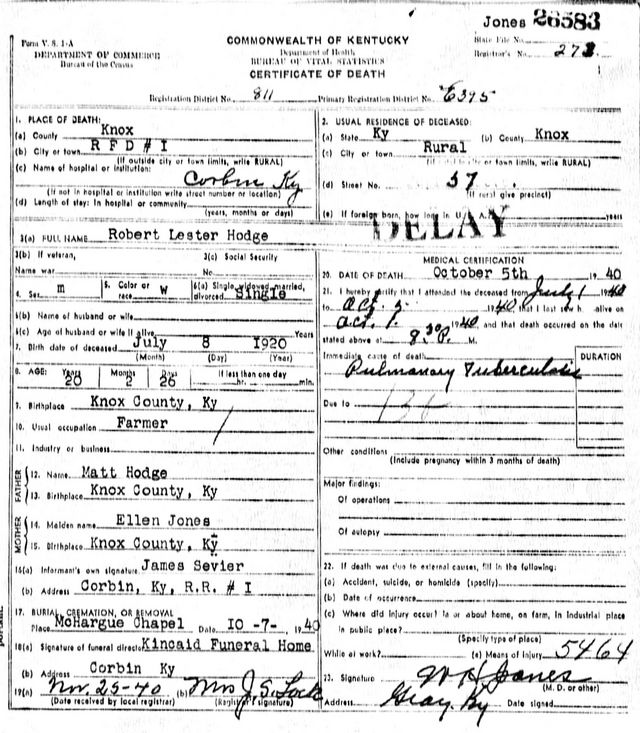 Jones 26583
Form V. S. 1-A
DEPARTMENT OF COMMERCE
Bureau of the Census
COMMONWEALTH OF KENTUCKY
Department of Health
BUREAU OF VITAL STATISTICS
CERTIFICATE OF DEATH
State File No.
Registrar's No. 273
Registration District No. 811 Primary Registration District No. 6395
1. PLACE OF DEATH:
(a) County Knox
(b) City or town R F D # I
(If outside city or town limits, write RURAL)
(c) Name of hospital or institution:
Corbin Ky
(If not in hospital or institution write street number or location)
(d) Length of stay: In hospital or community
(years, months or days)
2. USUAL RESIDENCE OF DECEASED:
(a) State Ky (b) County Knox
(c) City or town Rural
(If outside city or town limits, write RURAL)
(d) Street No. 37
(If rural give precinct)
(e) If foreign born, how long in U. S. A. years
DELAY
3(a) FULL NAME Robert Lester Hodge
3(b) If veteran,
Name war
3(c) Social Security
No
4. Sex m 5. Color or race W 6(a) Single, widowed, married, divorced Single
6(b) Name of husband or wife
6(c) Age of husband or wife if alive Years
7. Birth date of deceased July 8 I920
(Month) (Day) (Year)
8. AGE: Years 20 Months 2 Days 26 If less than one day hr. min.
9. Birthplace Knox County, Ky
10. Usual occupation Farmer
11. Industry or business
FATHER
12. Name Matt Hodge
13. Birthplace Knox County, Ky
MOTHER
14. Maiden name Ellen Jones
15. Birthplace Knox County, Ky
16(a) Informant's own signature James Sevier
(b) Address Corbin, Ky, R.R. # I
17. BURIAL, CREMATION, OR REMOVAL
Place McHargue Chapel Date IO -7- , 1940
18(a) Signature of funeral director Kincaid Funeral Home
(b) Address Corbin Ky
19(a) Nov. 25-40 (b) Mrs J. S. Lock
(Date received by local registrar) (Registrar's signature)
MEDICAL CERTIFICATION
20. DATE OF DEATH October 5th 1940
21. I hereby certify that I attended the deceased from July 1 1940
to Oct. 5 1940, that I last saw h alive on
Oct. 1. 1940, and that death occurred on the date
stated above at 8 30 P. M.
Immediate cause of death
Pulmonary Tuberculosis
DURATION
Due to
Other conditions
(Include pregnancy within 3 months of death)
Major findings:
Of operations
Of autopsy
22. If death was due to external causes, fill in the following:
(a) Accident, suicide, or homicide (specify)
(b) Date of occurrence
(c) Where did injury occur? In or about home, on farm, in industrial place
in public place?
(Specify type of place)
While at work? (e) Means of injury 5464
23. Signature W H Jones
(M. D. or other)
Address Gray, Ky Date signed